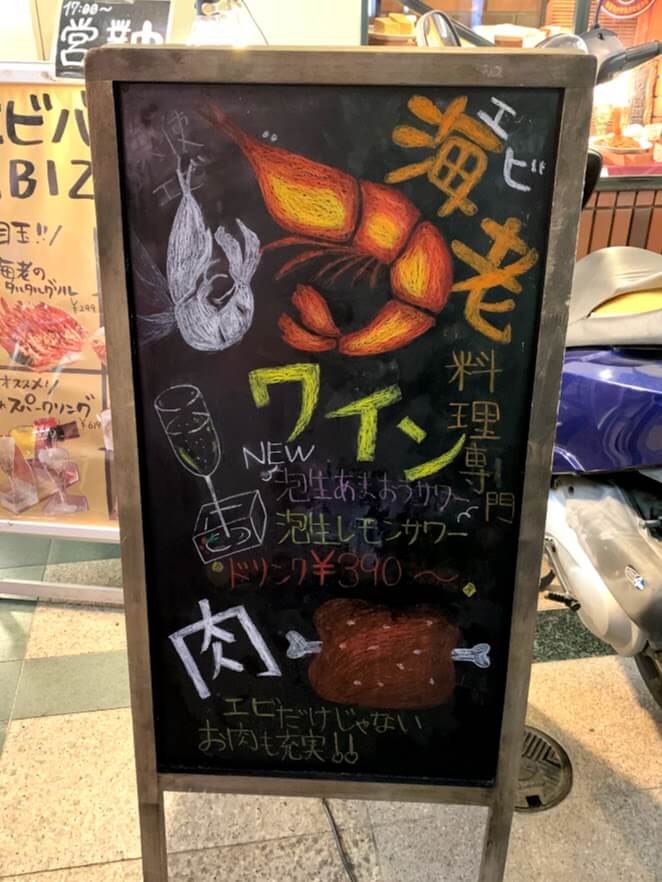 17:00～
営業中
エビ
海老
料理専門
ワイン
NEW
泡生あまおうサワー
泡生レモンサワー
ドリンク¥390～
肉
エビだけじゃない
お肉も充実!!
エビバ
BIZ
目玉!!
海老の
タルタルグリル
¥299
オススメ!
スパークリング